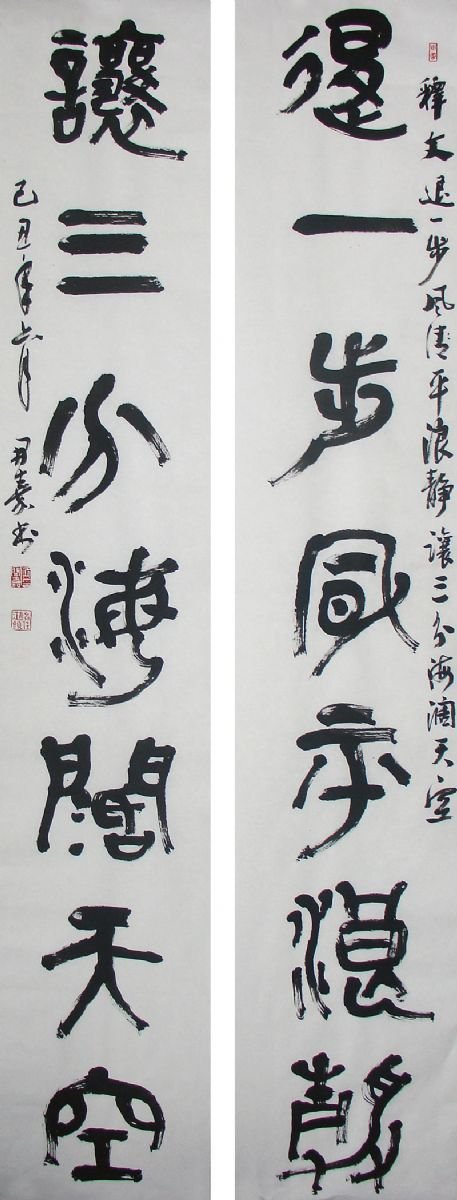 釋文 退一步風清平浪靜 讓三分海濶天空
退一步風平浪靜
讓三分海闊天空
己丑年六月